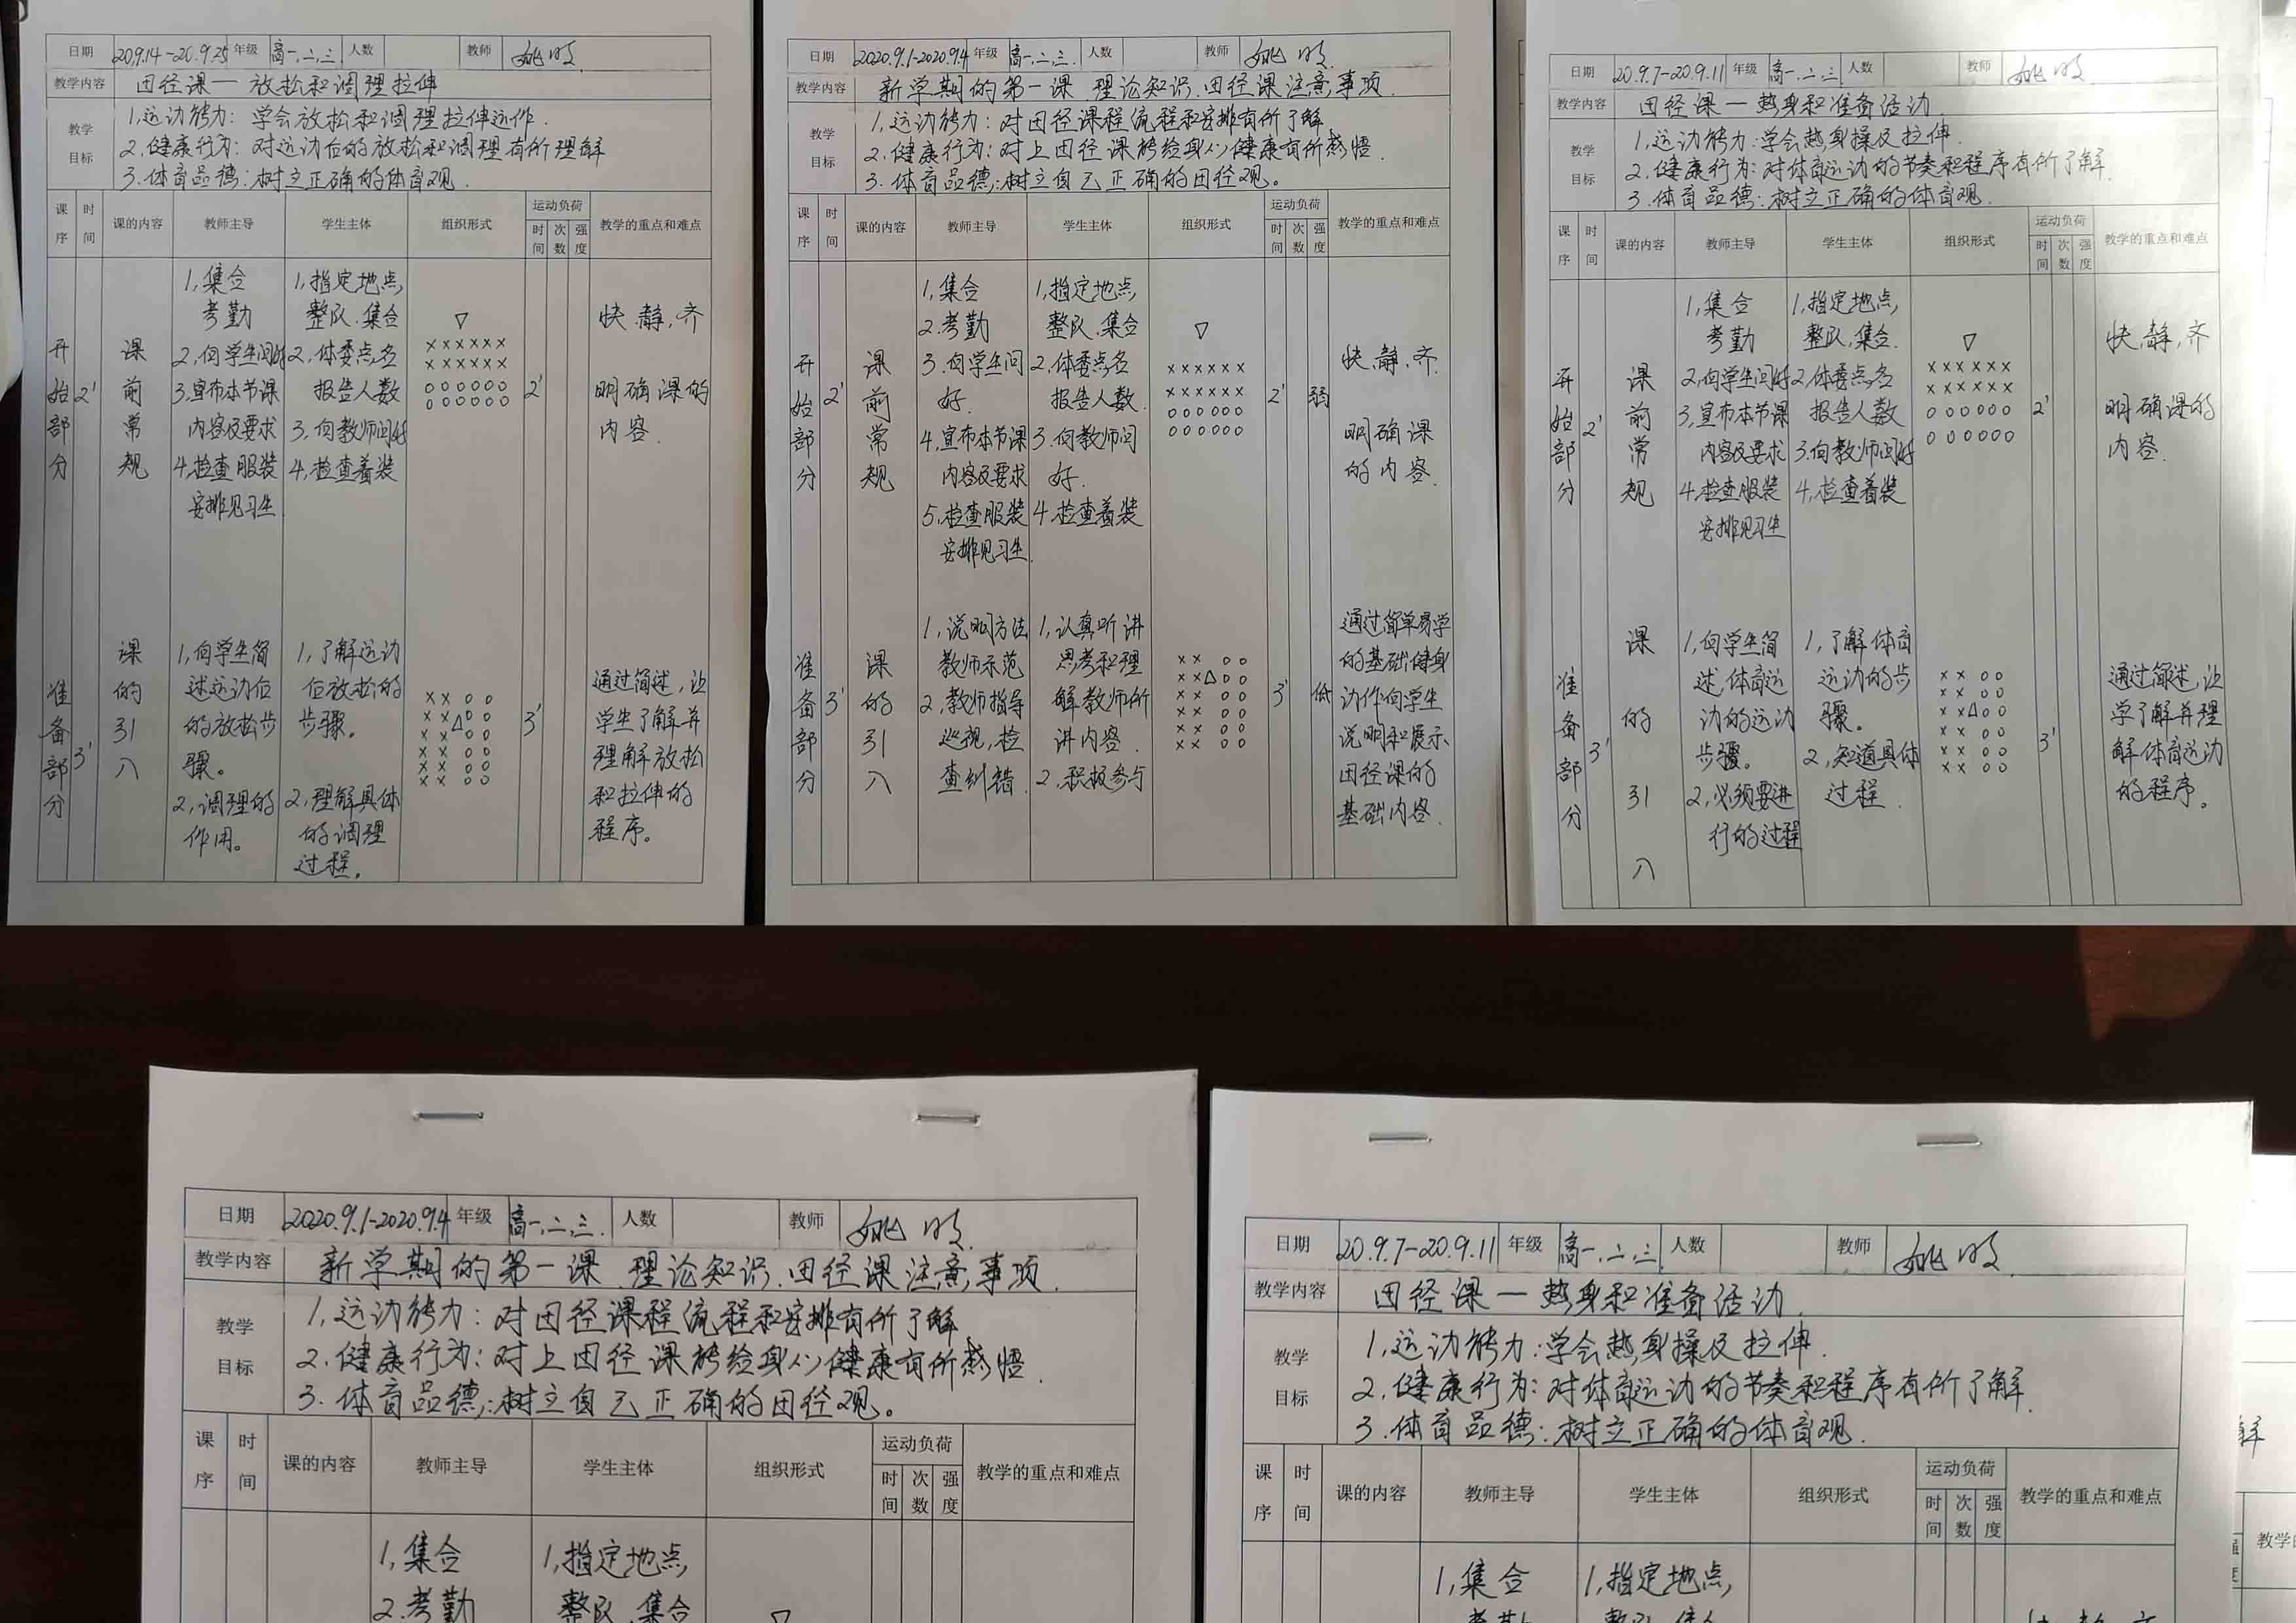 日期 20.9.14-20.9.25 年级 高一,二,三 人数 教师
教学内容 田径课一 放松和调理拉伸
教学目标
1,运动能力: 学会放松和调理拉伸运作.
2,健康行为: 对运动后的放松和调理有所理解
3.体育品德:树立正确的体育观.
课序 时间 课的内容 教师主导 学生主体 组织形式 运动负荷 时间 次数 强度 教学的重点和难点
开始部分 2' 课前常规
1,集合
考勤
2,向学生问好
3,宣布本节课
内容及要求
4,检查服装
安排见习生
1,指定地点,
整队.集合
2,体委点名
报告人数
3.向教师问好
4,检查着装
2'
快.静,齐
明确课的
内容.
准备部分 3' 课的引入
1,向学生简
述运动后
的放松步
骤。
2,调理的
作用。
1,了解运动
后放松的
步骤。
2,理解具体
的调理
过程.
3'
通过简述,让
学生了解并
理解放松
和拉伸的
程序。
日期 2020.9.1-2020.9.4 年级 高一,二,三. 人数 教师
教学内容 新学期的第一课 理论知识.田径课注意事项.
教学目标
1,运动能力:对田径课程流程和安排有所了解
2.健康行为:对上田径课能给身心健康有所感悟.
3.体育品德:树立自己正确的田径观。
课序 时间 课的内容 教师主导 学生主体 组织形式 运动负荷 时间 次数 强度 教学的重点和难点
开始部分 2' 课前常规
1,集合
2.考勤
3.向学生问
好.
4.宣布本节课
内容及要求
5,检查服装
安排见习生.
1,指定地点,
整队.集合
2.体委点名
报告人数.
3.向教师问
好.
4.检查着装
2' 弱
快.静.齐.
明确课
的内容.
准备部分 3' 课的引入
1,说明方法
教师示范
2,教师指导
巡视,检
查纠错.
1,认真听讲
思考和理
解教师所
讲内容.
2.积极参与
3' 低
通过简单易学
的基础健身
动作向学生
说明和展示
田径课的
基础内容.
日期 20.9.7-20.9.11 年级 高一,二,三 人数 教师
教学内容 田径课一 热身和准备活动.
教学目标
1,运动能力:学会热身操及拉伸.
2.健康行为:对体育运动的节奏和程序有所了解.
3.体育品德:树立正确的体育观.
课序 时间 课的内容 教师主导 学生主体 组织形式 运动负荷 时间 次数 强度 教学的重点和难点
开始部分 2' 课前常规
1,集合
考勤
2,向学生问好
3,宣布本节课
内容及要求
4,检查服装
安排见习生
1,指定地点,
整队,集合.
2,体委点名
报告人数
3.向教师问好
4,检查着装
2'
快.静,齐
明确课的
内容.
准备部分 3' 课的引入
1,向学生简
述,体育运
动的运动
步骤。
2,必须要进
行的过程
1,了解体育
运动的步
骤。
2,知道具体
过程.
3'
通过简述,让
学了解并理
解体育运动
的程序。
日期 2020.9.1-2020.9.4 年级 高一,二,三. 人数 教师
教学内容 新学期的第一课 理论知识.田径课注意事项.
教学目标
1,运动能力:对田径课程流程和安排有所了解
2.健康行为:对上田径课能给身心健康有所感悟.
3.体育品德:树立自己正确的田径观。
课序 时间 课的内容 教师主导 学生主体 组织形式 运动负荷 时间 次数 强度 教学的重点和难点
1,集合
2.考勤
1,指定地点,
整队.集合
日期 20.9.7-20.9.11 年级 高一,二,三 人数 教师
教学内容 田径课一 热身和准备活动.
教学目标
1,运动能力:学会热身操及拉伸.
2.健康行为:对体育运动的节奏和程序有所了解.
3.体育品德:树立正确的体育观.
课序 时间 课的内容 教师主导 学生主体 组织形式 运动负荷 时间 次数 强度 教学的重点和难点
1,集合
1,指定地点,